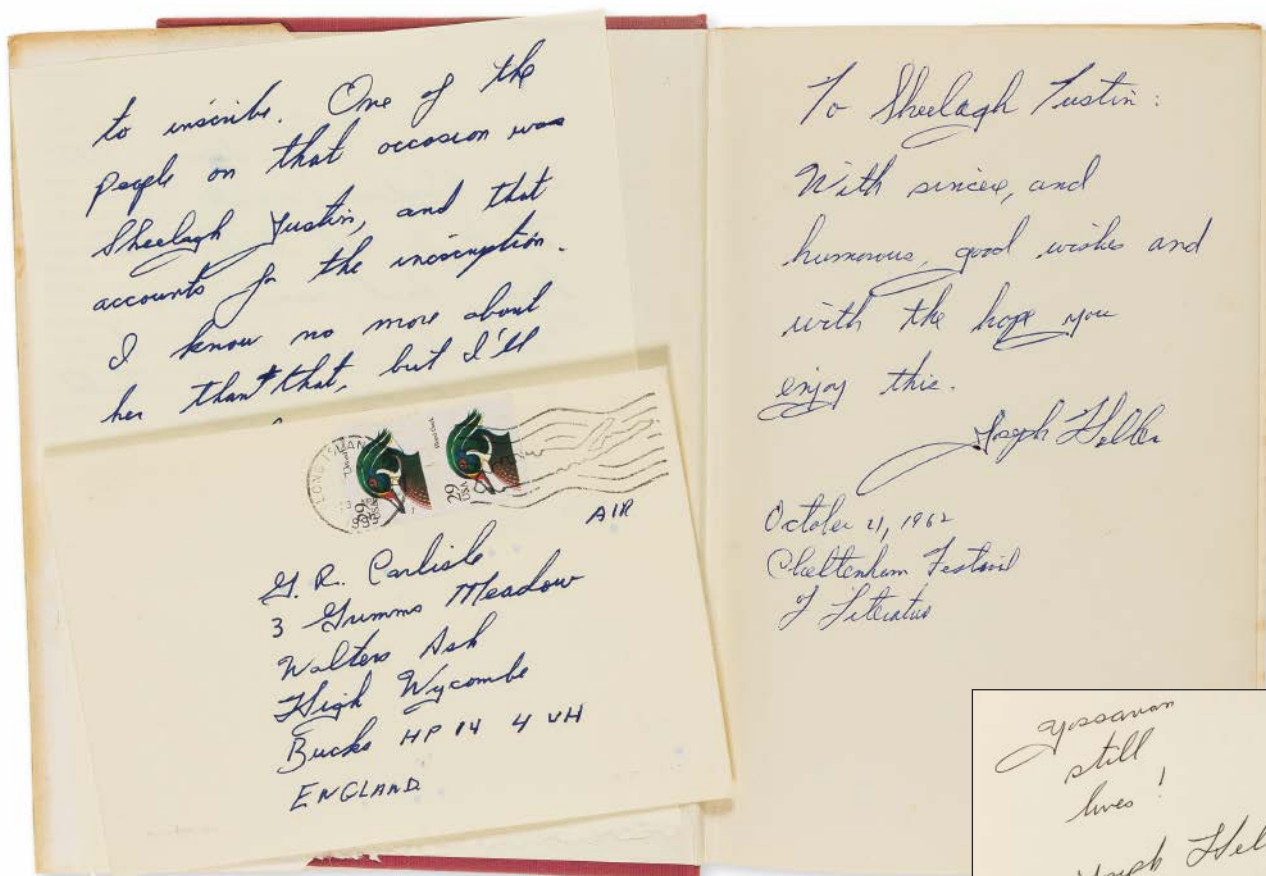 to inscribe. One of the
people on that occasion was
Sheelagh Tustin, and that
accounts for the inscription.
I know no more about
her than that, but I'll
LONG ISLAN
Wood Duck
29
USA
Wood Duck
29
USA
AIR
G. R. Carlisle
3 Grimms Meadow
Walters Ash
High Wycombe
Bucks HP 14 4 UH
ENGLAND
To Sheelagh Tustin:
With sincere, and
humorous, good wishes and
with the hope you
enjoy this.
Joseph Heller
October 21, 1962
Cheltenham Festival
of Literature
Yossarian
still
lives!
Joseph Hel